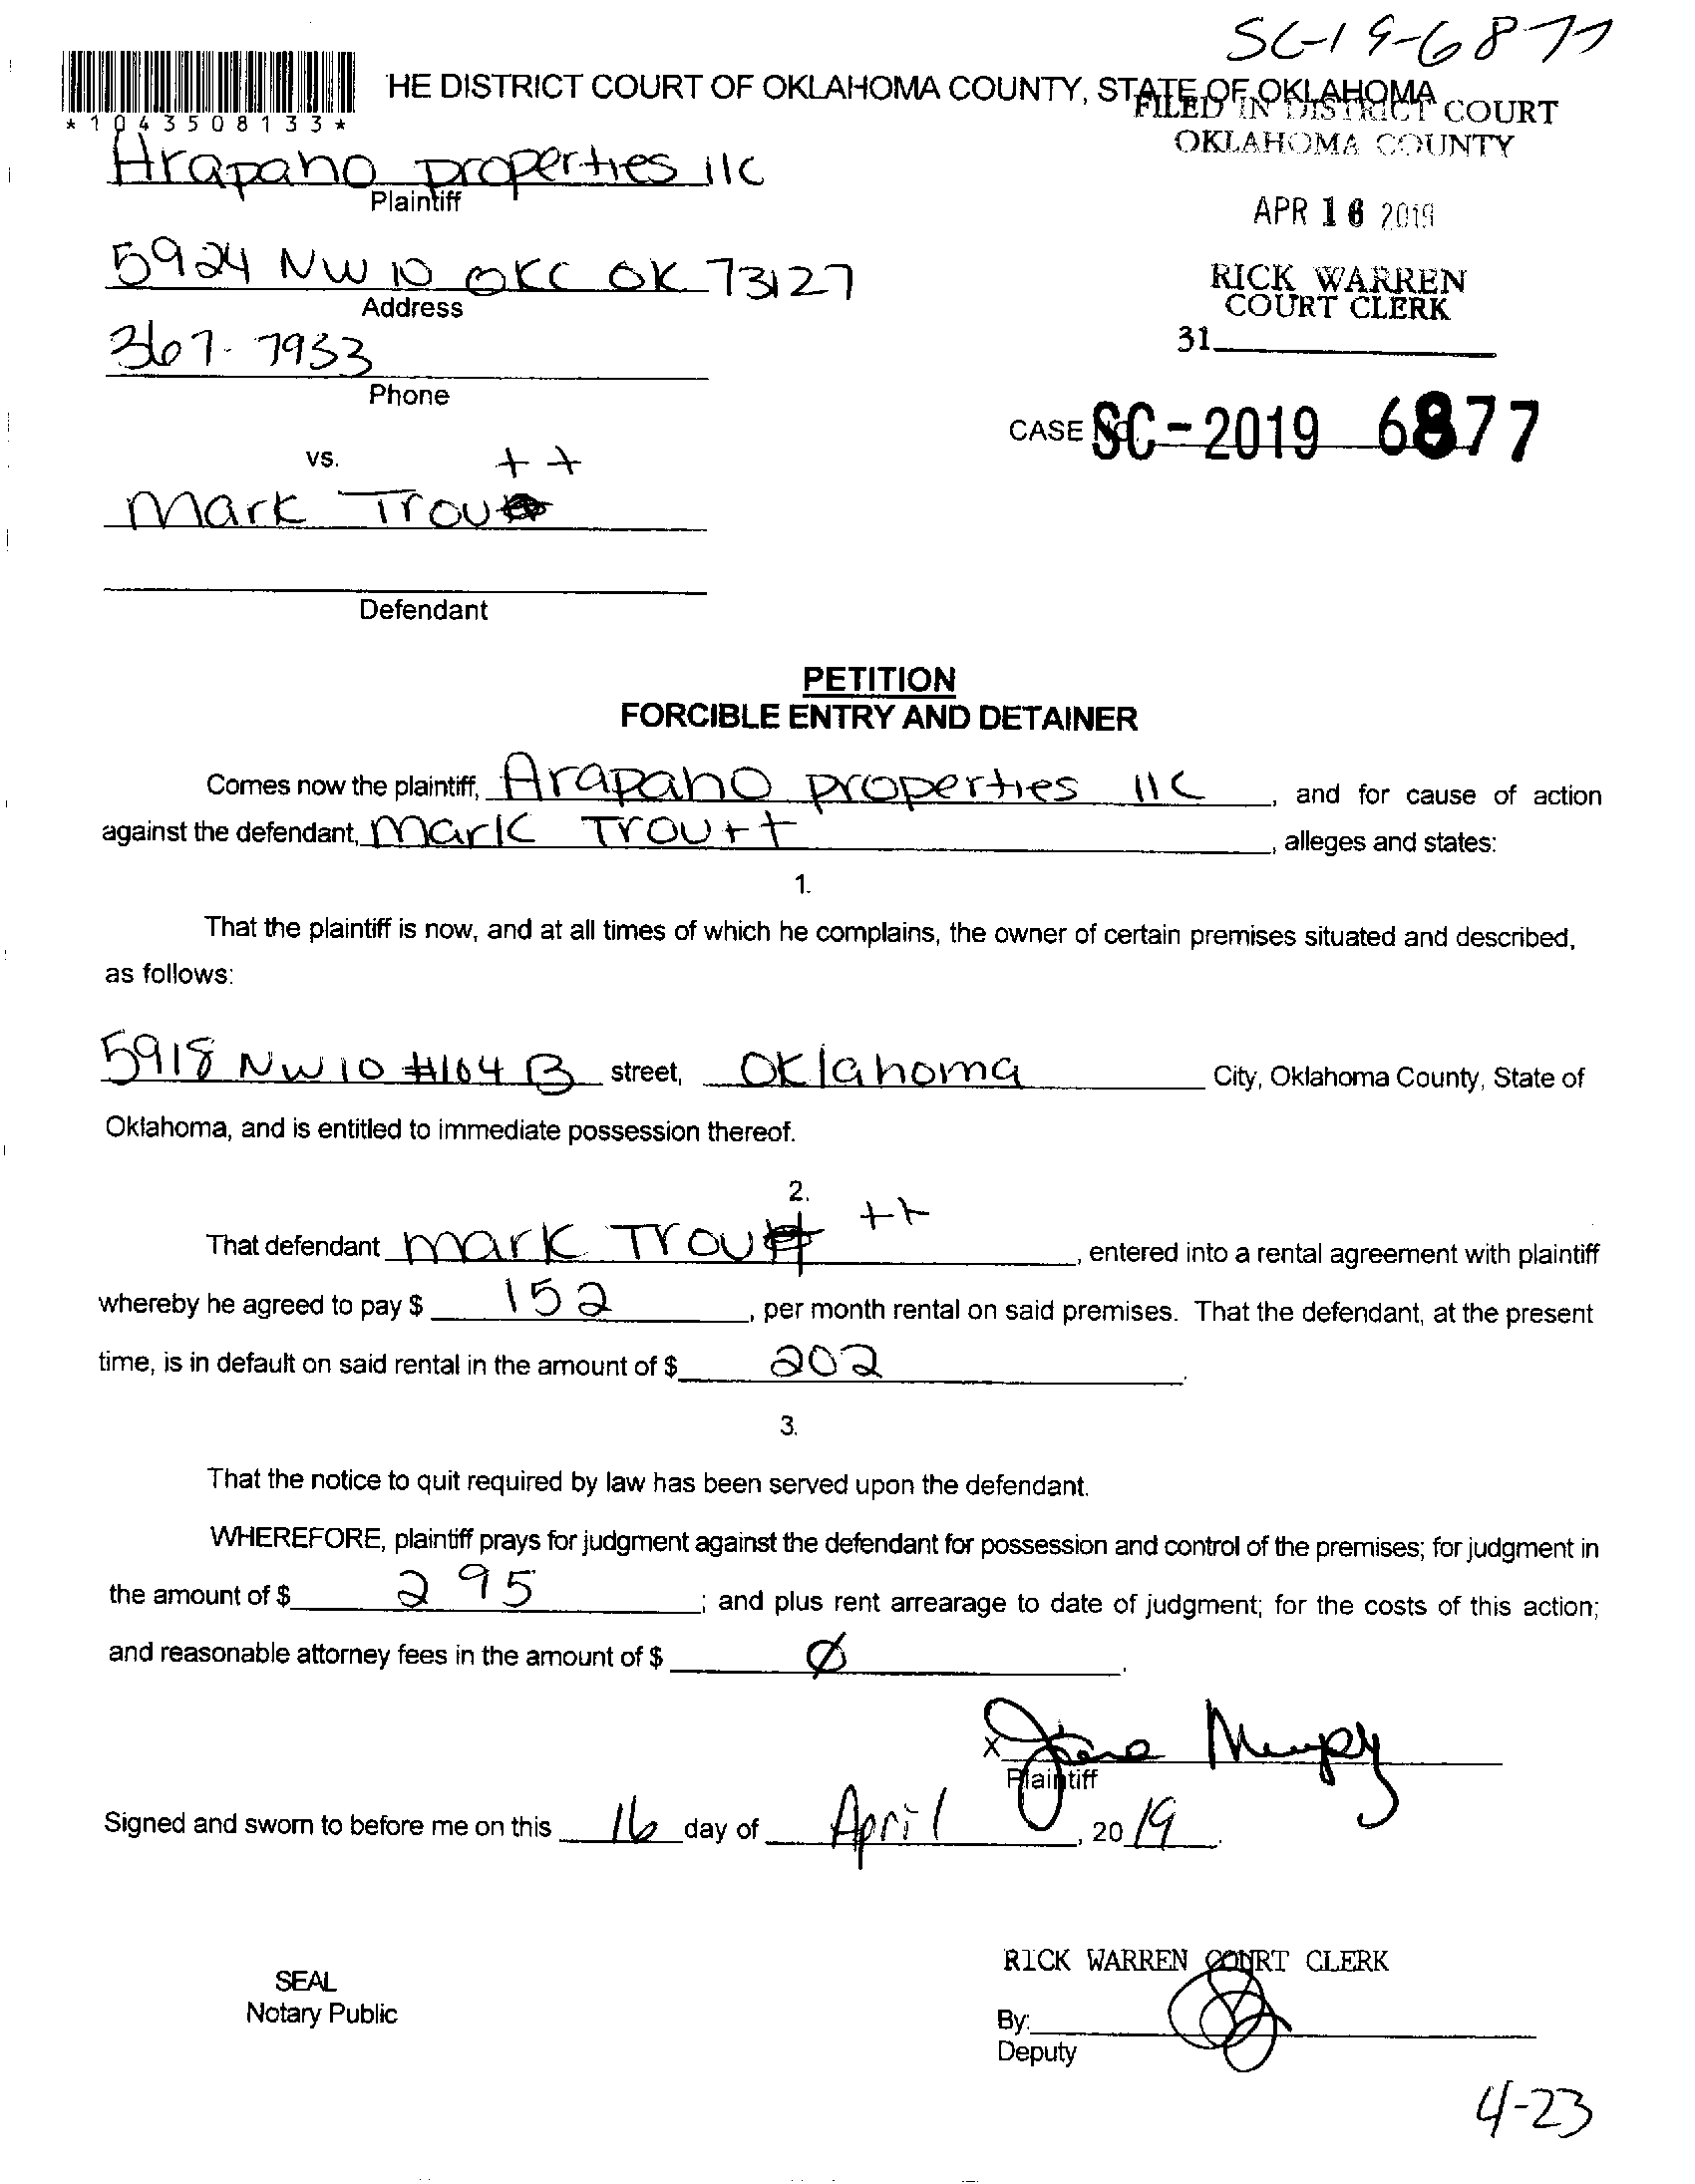 SC-19-6877
HE DISTRICT COURT OF OKLAHOMA COUNTY, STATE OF OKLAHOMA
FILED IN DISTRICT COURT
OKLAHOMA COUNTY
*1043508133*
Arapaho properties llc
Plaintiff
APR 16 2019
5924 NW 10 OKC OK 73127
Address
RICK WARREN
COURT CLERK
31
367-7933
Phone
CASE NO. SC-2019 6877
vs.
tt
Mark Trou
Defendant
PETITION
FORCIBLE ENTRY AND DETAINER
Comes now the plaintiff, Arapaho properties llc, and for cause of action
against the defendant, Mark Troutt, alleges and states:
1.
That the plaintiff is now, and at all times of which he complains, the owner of certain premises situated and described,
as follows:
5918 NW 10 #104 B street, Oklahoma City, Oklahoma County, State of
Oklahoma, and is entitled to immediate possession thereof.
2.
That defendant Mark Trou tt, entered into a rental agreement with plaintiff
whereby he agreed to pay $ 152, per month rental on said premises. That the defendant, at the present
time, is in default on said rental in the amount of $ 202.
3.
That the notice to quit required by law has been served upon the defendant.
WHEREFORE, plaintiff prays for judgment against the defendant for possession and control of the premises; for judgment in
the amount of $ 295; and plus rent arrearage to date of judgment; for the costs of this action;
and reasonable attorney fees in the amount of $ Ø.
X
Plaintiff
Signed and sworn to before me on this 16 day of April, 2019.
RICK WARREN COURT CLERK
SEAL
Notary Public
By:
Deputy
4-23